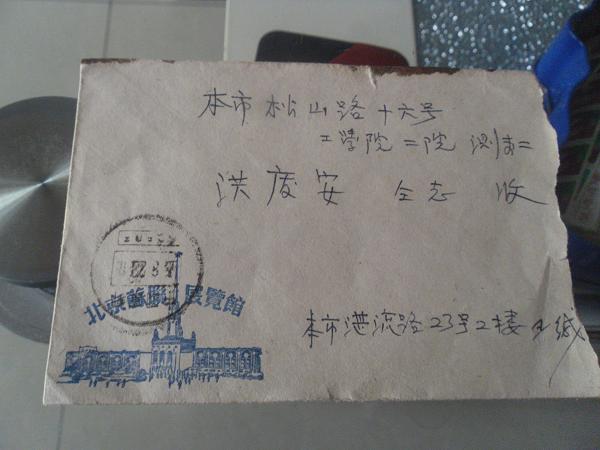 本市松山路十六号
工学院二院 测曲二
洪庆安 仝志 收
北京蘇联展覽館
本市港湾路23号2楼